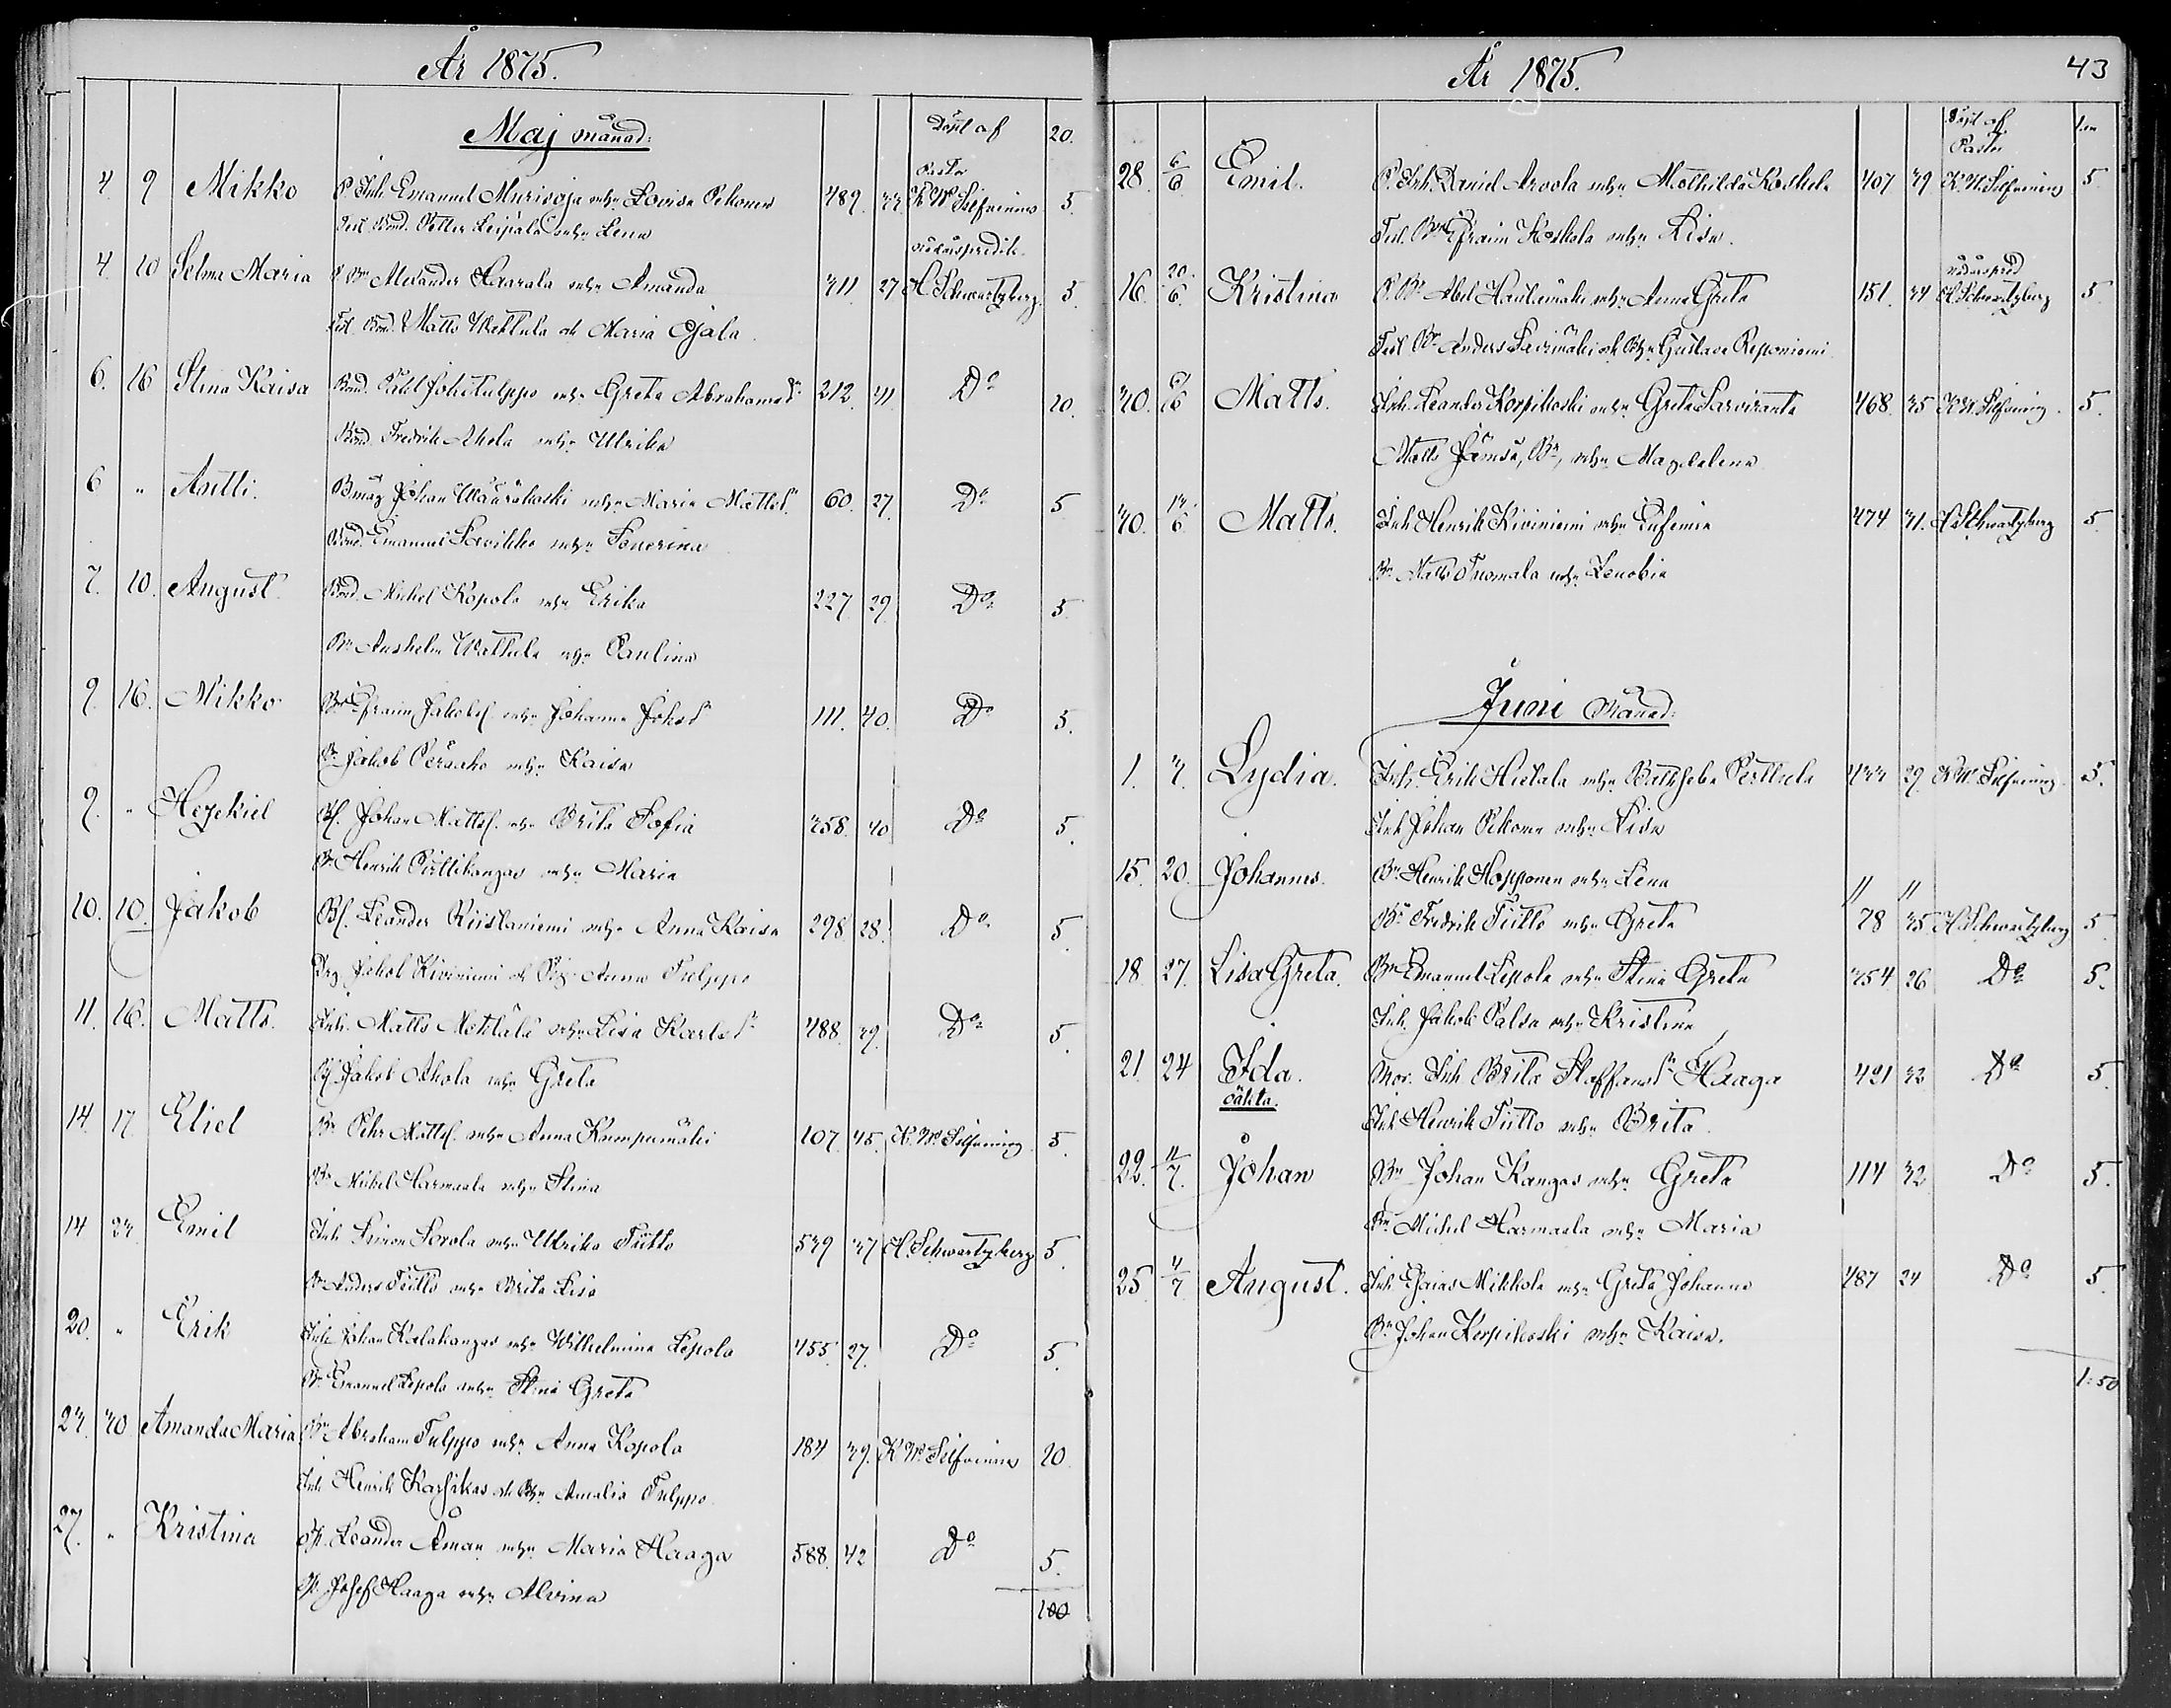 År 1875.
Maj månad:
Döpt af 20.
Pastor
4 9 Mikko P. Inh. Emanuel Murisoja och h:u Lovisa Pekonen 489. 33. K W Silfvenius 5.
Test. Bond. Petter Leipälä och h:u Lena
nådårspredik.
4. 10 Selma Maria P. B:n Alexander Haarala och h:u Amanda 311 27 H. Schwartzberg. 5.
Test. Bond. Matts Wattula och Maria Ojala
6. 16 Stina Kaisa Bond. Pehl Johi Tulppo och h:u Greta Abrahamsd:r 212. 41 D:o 10.
Bond. Fredrik Ahola och h:u Ulrika
6 " Antti. Bmåg Johan Määräkoski och h:u Maria Mattsd:r 60. 27. D:o 5
Bond. Emanuel Savikko och h:u Severina
7. 10. August Bond. Michel Kopola och h:u Erika 227. 29. D:o 5.
B:n Anshelm Wattula och h:u Paulina
9. 16. Mikko B:n Efraim Jakobss. och h:u Johanna Johsd:r 111. 40. D:o 5.
B:n Jakob Peräaho och h:u Kaisa
9. " Hezekiel Bs. Johan Mattss. och h:u Brita Sofia 358. 40 D:o 5.
B:n Henrik Pirttikangas och h:u Maria
10. 10. Jakob Bs. Leander Ruislaniemi och h:u Anna Kaisa 298. 28. D:o 5
Drg Jakob Kiviniemi och Pig. Anna Tulppo
11. 16. Matts. Inh. Matts Mottälä och h:u Lisa Karlsd:r 488. 39. D:o 5.
Bs. Jakob Ahola och h:u Greta
14. 17. Eliel B:n Pehr Mattss. och h:u Anna Kumpumäki 107. 45. K. W. Silfvenius 5.
B:n Michel Harmaala och h:u Stina
14 23. Emil Inh. Simon Sorola och h:u Ulrika Tiitto 539 37 H. Schwartzberg 5
B:n Anders Tiitto och h:u Brita Lisa
20. " Erik Inh. Johan Kalakangas och h:u Wilhelmina Lepola 455. 27. D:o 5.
B:n Emanuel Lepola och h:u Stina Greta
23. 30 Amanda Maria B:n Abraham Tulppo och h:u Anna Kopola 184 39. K W. Silfvenius 10.
Inh Henrik Karsikas och Bh:u Amalia Tulppo
27. " Kristina Leander Åman och h:u Maria Haaga 588. 42 D:o 5.
Josef Haaga och h:u Alvina
100
År 1875. 43
Döpt af
Pastor
28. 6/6 Emil. P. Inh. Daniel Arvola och h:u Mathilda Koskela 407 39 K. W. Silfvenius 5
Test. B:n Efraim Koskela och h:u Lisa.
nådårspred
16. 20/6. Kristina P. B:n Abel Hautamäki och h:u Anna Greta 151. 34 H. Schwartzberg 5.
Test B:n Anders Savimäki och Bh:u Gustava Reponiemi
30. 6/6 Matts. Inh. Leander Korpikoski och h:u Greta Sarviranta 468. 35 K W. Silfvenius 5.
Matts Jämsä, B:n, och h:u Magdalena
30. 13/6. Matts. Inh. Henrik Kiviniemi och h:u Eufemia 474 31. H Schwartzberg 5
B:n Matts Tuomala och h:u Zenobia
Juni Månad:
1. 3. Lydia. Inh. Erik Hietala och h:u Bathseba Perttula 433 29. K W. Silfvenius 5.
Inh. Johan Pekonen och h:u Lisa
15. 20. Johannes. B:n Henrik Hopponen och h:u Lena " "
B:n Fredrik Tiitto och h:u Greta 78 35 H. Schwartzberg 5
18. 27. Lisa Greta. B:n Emanuel Lepola och h:u Stina Greta 354 26 D:o 5.
Inh. Jakob Palsa och h:u Kristina
21. 24 Ida. Mor. Inh Brita Staffansd:r Haaga 421 32 D:o 5.
oäkta. Inh Henrik Tiitto och h:u Brita.
22. 11/7. Johan B:n Johan Kangas och h:u Greta 114 32 D:o 5.
B:n Michel Harmaala och h:u Maria
25. 4/7 August. Inh. Esaias Mikkola och h:u Greta Johanna 487 24 D:o 5.
B:n Johan Korpikoski och h:u Kaisa.
1:50